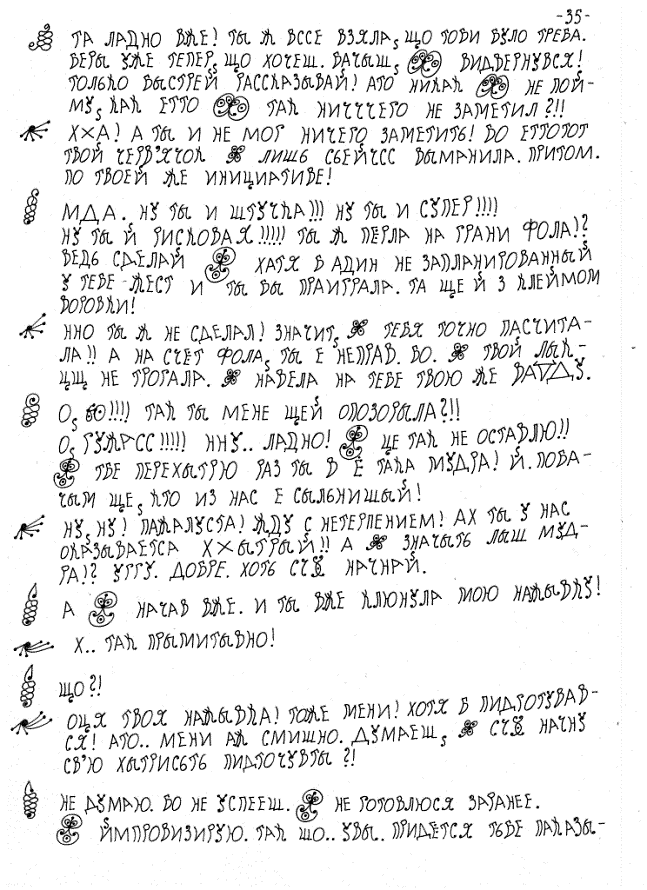 -35-
ТА ЛАДНО ВЖЕ! ТЫ Ж ВССЕ ВЗЯЛА, ЩО ТОБИ БУЛО ТРЕБА.
БЕРЫ УЖЕ ТЕПЕР, ЩО ХОЧЕШ. БАЧЫШ, ВИДВЕРНУВСЯ!
ТОЛЬКО БЫСТРЕЙ РАССКАЗЫВАЙ! АТО НИКАК НЕ ПОЙ-
МУ, КАК ЕТТО ТАК НИЧЧЧЕГО НЕ ЗАМЕТИЛ?!!
ХХА! А ТЫ И НЕ МОГ НИЧЕГО ЗАМЕТИТЬ! БО ЕТТОТОТ
ТВОЙ ЧЕРВ'ЯЧОК ЛИШЬ СЬЕЙЧСС ВЫМАНИЛА. ПРИТОМ.
ПО ТВОЕЙ ЖЕ ИНИЦИАТИВЕ!
МДА.. НУ ТЫ И ШТУЧКА!!! НУ ТЫ И СУПЕР!!!!
НУ ТЫ Й РИСКОВАЯ!!!!! ТЫ Ж ПЕРЛА НА ГРАНИ ФОЛА!?
ВЕДЬ СДЕЛАЙ ХАТЯ Б АДИН НЕ ЗАПЛАНИРОВАННЫЙ
У ТЕБЕ ЖЕСТ И ТЫ БЫ ПРАИГРАЛА. ТА ЩЕ Й З КЛЕЙМОМ
ВОРОВКИ!
ННО ТЫ Ж НЕ СДЕЛАЛ! ЗНАЧИТ, ТЕБЯ ТОЧНО ПАСЧИТА-
ЛА!! А НА СЧЕТ ФОЛА, ТЫ Е НЕПРАВ. БО. ТВОЙ
НЕ ТРОГАЛА. НАВЕЛА НА ТЕБЕ ТВОЮ ЖЕ
О, БО!!!! ТАК ТЫ МЕНЕ ЩЕЙ ОПОЗОРЫЛА?!!
О, !!!!! ННУ.. ЛАДНО! ЦЕ ТАК НЕ ОСТАВЛЮ!!
ТБЕ ПЕРЕХЫТРЮ РАЗ ТЫ В Ё ТАКА МУДРА! Й. ПОБА-
ЧЫМ ЩЕ, КТО ИЗ НАС Е СЫЛЬНИШЫЙ!
НУ, НУ! ПАЖАЛУСТА! ЖДУ С НЕТЕРПЕНИЕМ! АХ ТЫ У НАС
ОКАЗЫВАЕТСА ХХЫТРЫЙ!! А ЗНАЧЫТЬ ЛЫШ МУД-
РА!? УГГУ. ДОБРЕ. ХОТЬ НАЧНАЙ.
А НАЧАВ ВЖЕ. И ТЫ ВЖЕ КЛЮНУЛА МОЮ НАЖЫВКУ!
Х.. ТАК ПРЫМИТЫВНО!
ЩО?!
ОЦЯ ТВОЯ НАЖЫВКА! ТОЖЕ МЕНИ! ХОТЯ Б ПИДГОТУВАВ-
СЯ! АТО.. МЕНИ АЖ СМИШНО. ДУМАЕШ, НАЧНУ
СВ'Ю ХЫТРИСЬТЬ ПИДТОЧУВТЫ?!
НЕ ДУМАЮ. БО НЕ УСПЕЕШ. НЕ ГОТОВЛЮСЯ ЗАРАНЕЕ.
ИМПРОВИЗИРУЮ. ТАК ЩО.. УВЫ. ПРИДЁТСЯ ТЬБЕ ПАКАЗЫ-